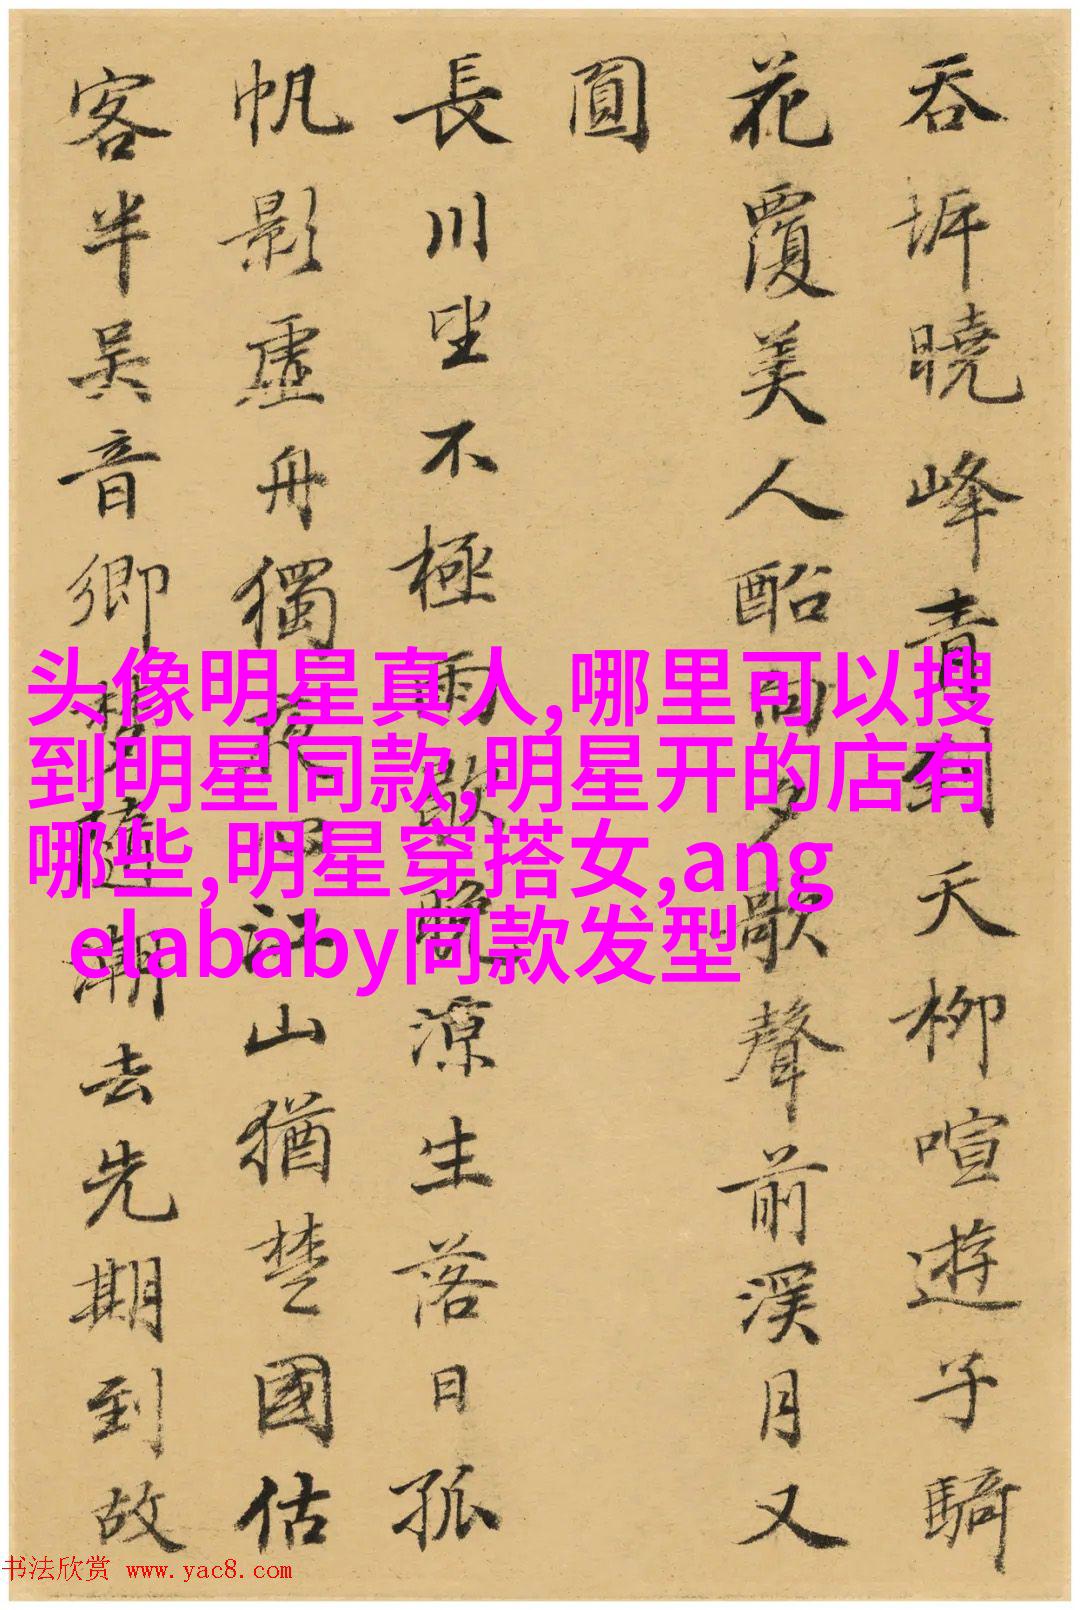 吞坼曉峰青到天柳喧遊子騎
花覆美人酩向夕歌聲前溪月又
圓
長川坐不極雨歇晚涼生落日孤
帆影虛舟獨夜江山猶楚國估
客半吳音鄉夢隨潮去先期到故
头像明星真人,哪里可以搜
到明星同款,明星开的店有
哪些,明星穿搭女,ang
elababy同款发型
书法欣赏 www.yac8.com